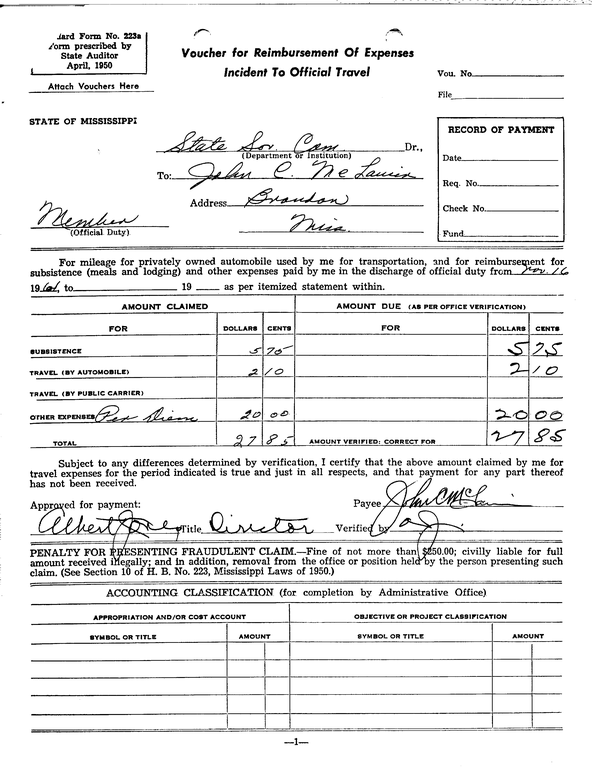 dard Form No. 223a
Form prescribed by
State Auditor
April, 1950
Attach Vouchers Here
Voucher for Reimbursement Of Expenses
Incident To Official Travel
Vou. No.
File
STATE OF MISSISSIPPI
State Sov. Com Dr.,
(Department or Institution)
To: John C. McLaurin
Address Brandon
Miss.
Member
(Official Duty)
RECORD OF PAYMENT
Date
Req. No.
Check No.
Fund
For mileage for privately owned automobile used by me for transportation, and for reimbursement for
subsistence (meals and lodging) and other expenses paid by me in the discharge of official duty from Nov. 16
1961, to 19 as per itemized statement within.
AMOUNT CLAIMED AMOUNT DUE (AS PER OFFICE VERIFICATION)
FOR DOLLARS CENTS FOR DOLLARS CENTS
SUBSISTENCE 5 75 5 75
TRAVEL (BY AUTOMOBILE) 2 10 2 10
TRAVEL (BY PUBLIC CARRIER)
OTHER EXPENSES Per Diem 20 00 20 00
TOTAL 27 85 AMOUNT VERIFIED: CORRECT FOR 27 85
Subject to any differences determined by verification, I certify that the above amount claimed by me for
travel expenses for the period indicated is true and just in all respects, and that payment for any part thereof
has not been received.
Approved for payment: Payee John C McLaurin
Albert Jones Title Director Verified by
PENALTY FOR PRESENTING FRAUDULENT CLAIM.—Fine of not more than $250.00; civilly liable for full
amount received illegally; and in addition, removal from the office or position held by the person presenting such
claim. (See Section 10 of H. B. No. 223, Mississippi Laws of 1950.)
ACCOUNTING CLASSIFICATION (for completion by Administrative Office)
APPROPRIATION AND/OR COST ACCOUNT OBJECTIVE OR PROJECT CLASSIFICATION
SYMBOL OR TITLE AMOUNT SYMBOL OR TITLE AMOUNT
—1—